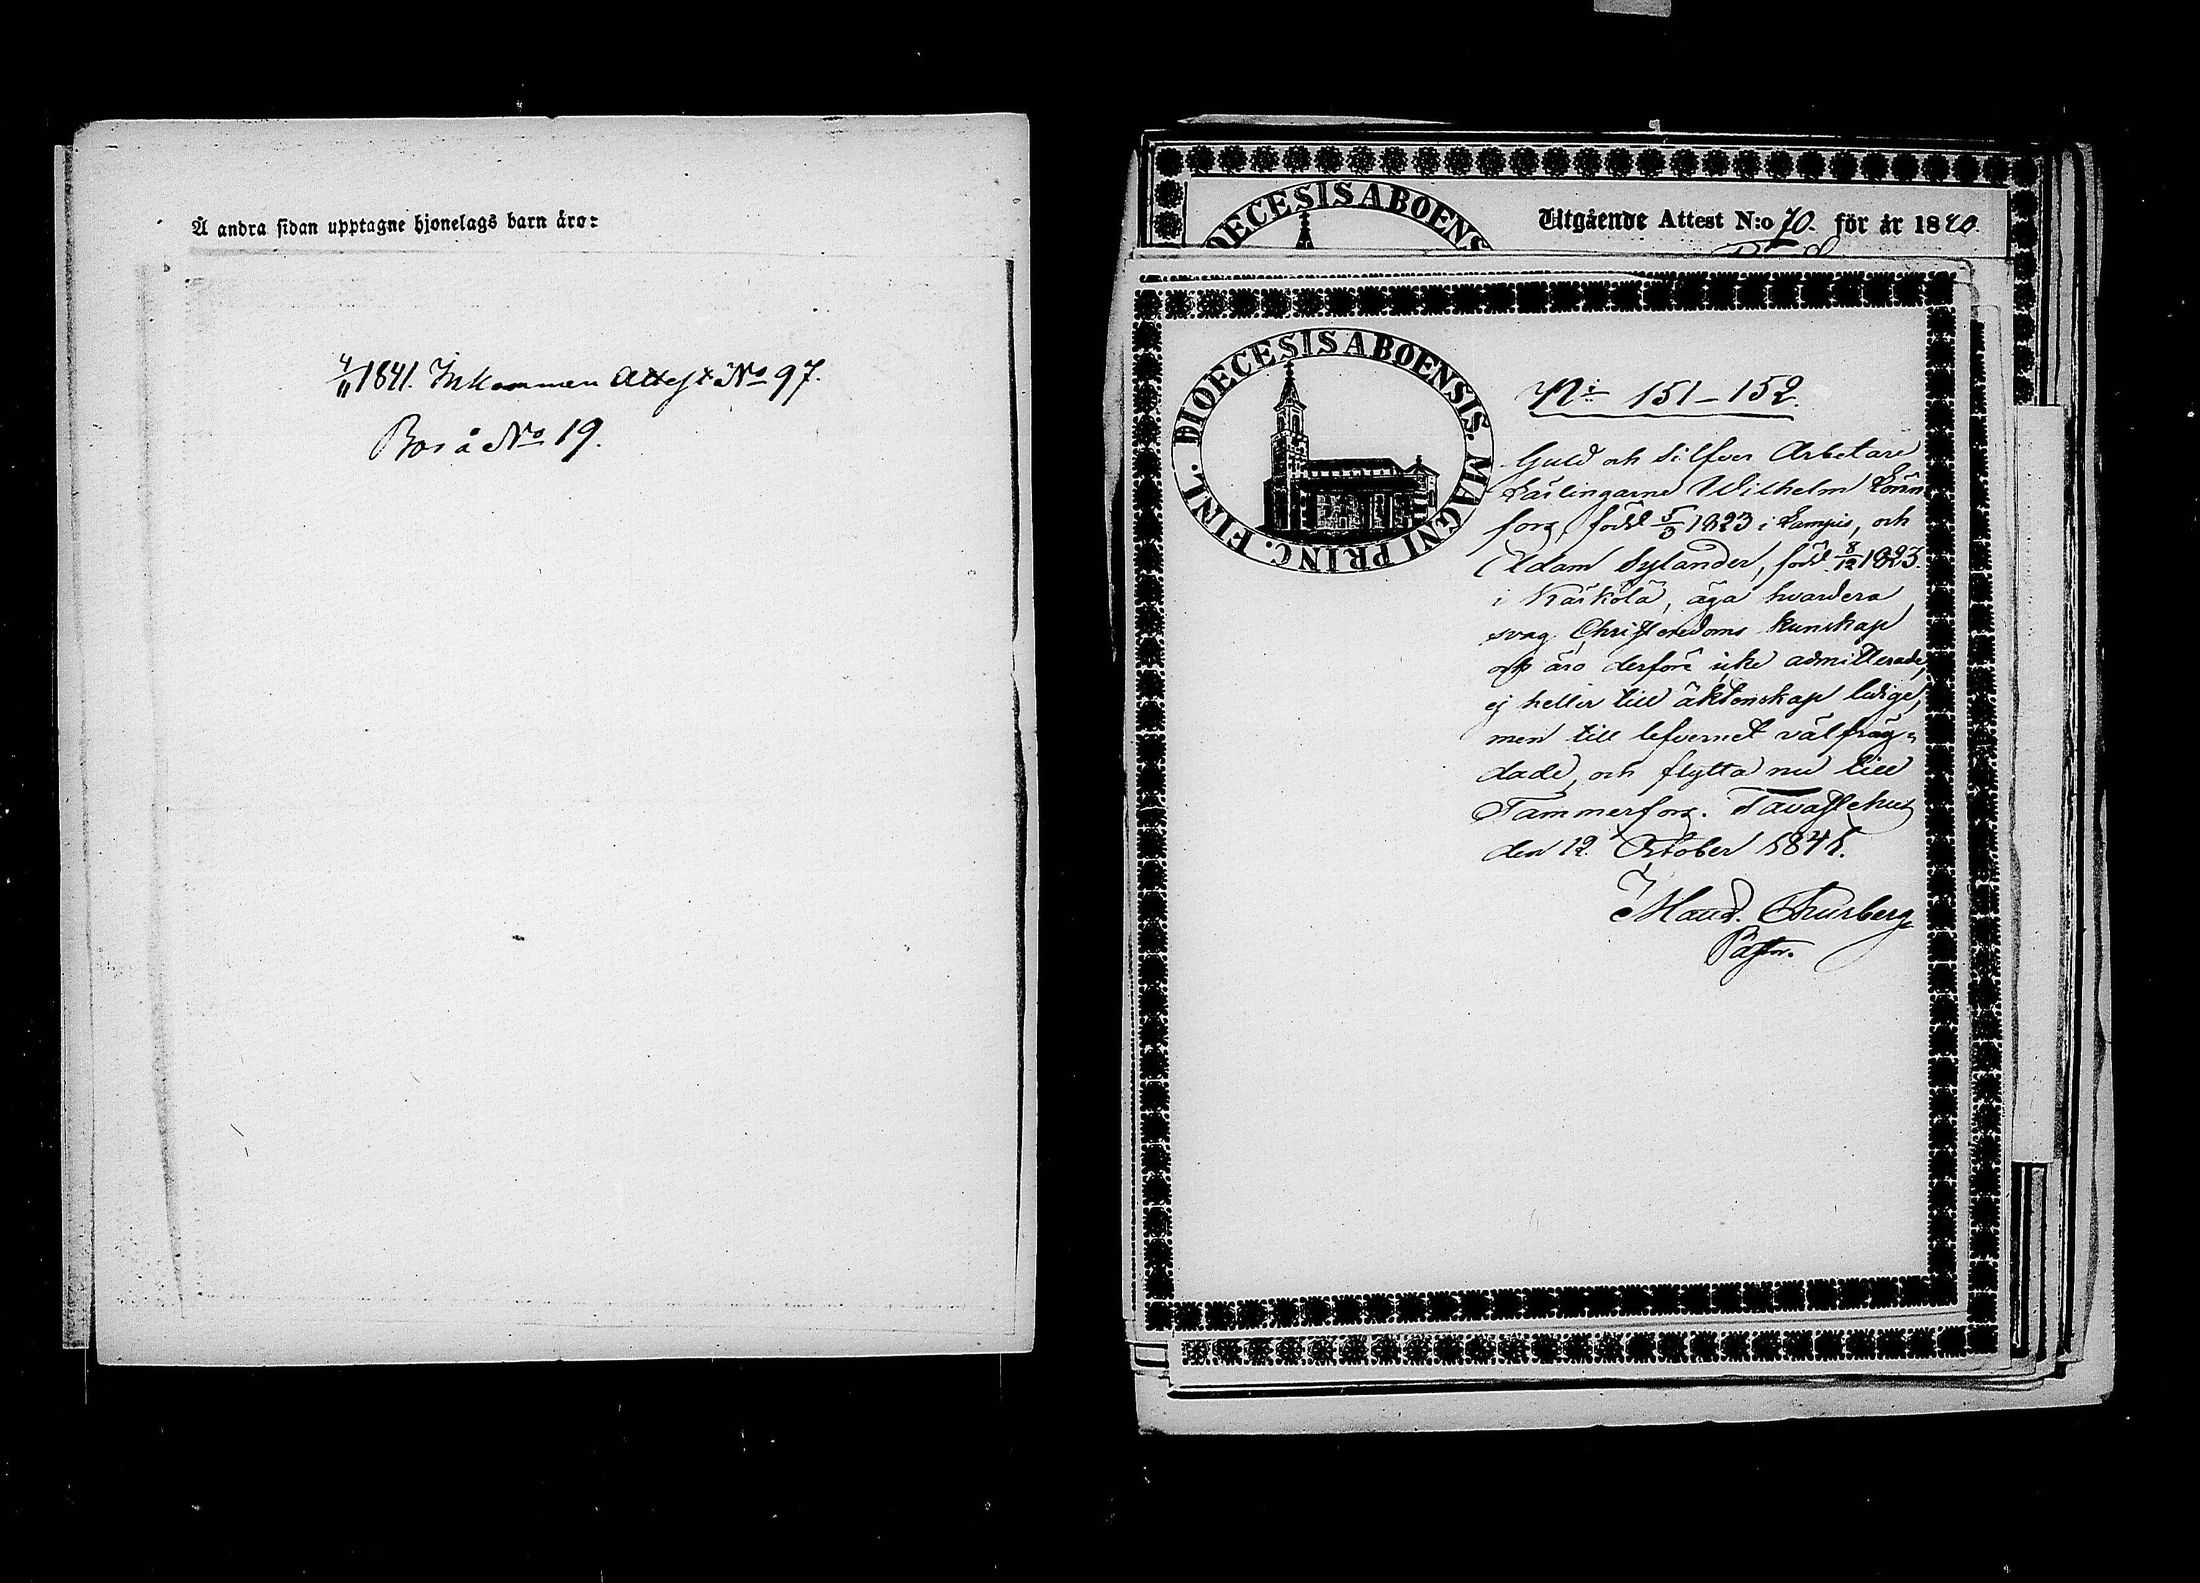 Å andra sidan upptagne hjonelags barn äro:
4/11 1841. Inkommen Attest No 97.
Bor å No 19.
DIOECESIS ABOENS
Utgående Attest N:o 70. för år 1840.
DIOECESIS ABOENSIS. MAGNI PRINC. FINL.
Ni 151–152.
Guld och Silfver Arbetare
Lärlingarne Wilhelm Lönn
fors, född 5/8 1823 i Lampis, och
Adam Sylander, född 8/12 1823.
i Kärkölä, äga hvardera
svag Christendoms kunskap
och äro derföre icke admitterade,
ej heller till äktenskap ledige,
men till lefvernet välfräg=
dade, och flytta nu till
Tammerfors. Tavastehus
den 12 October 1841.
Maud. Thurberg
Pastor.